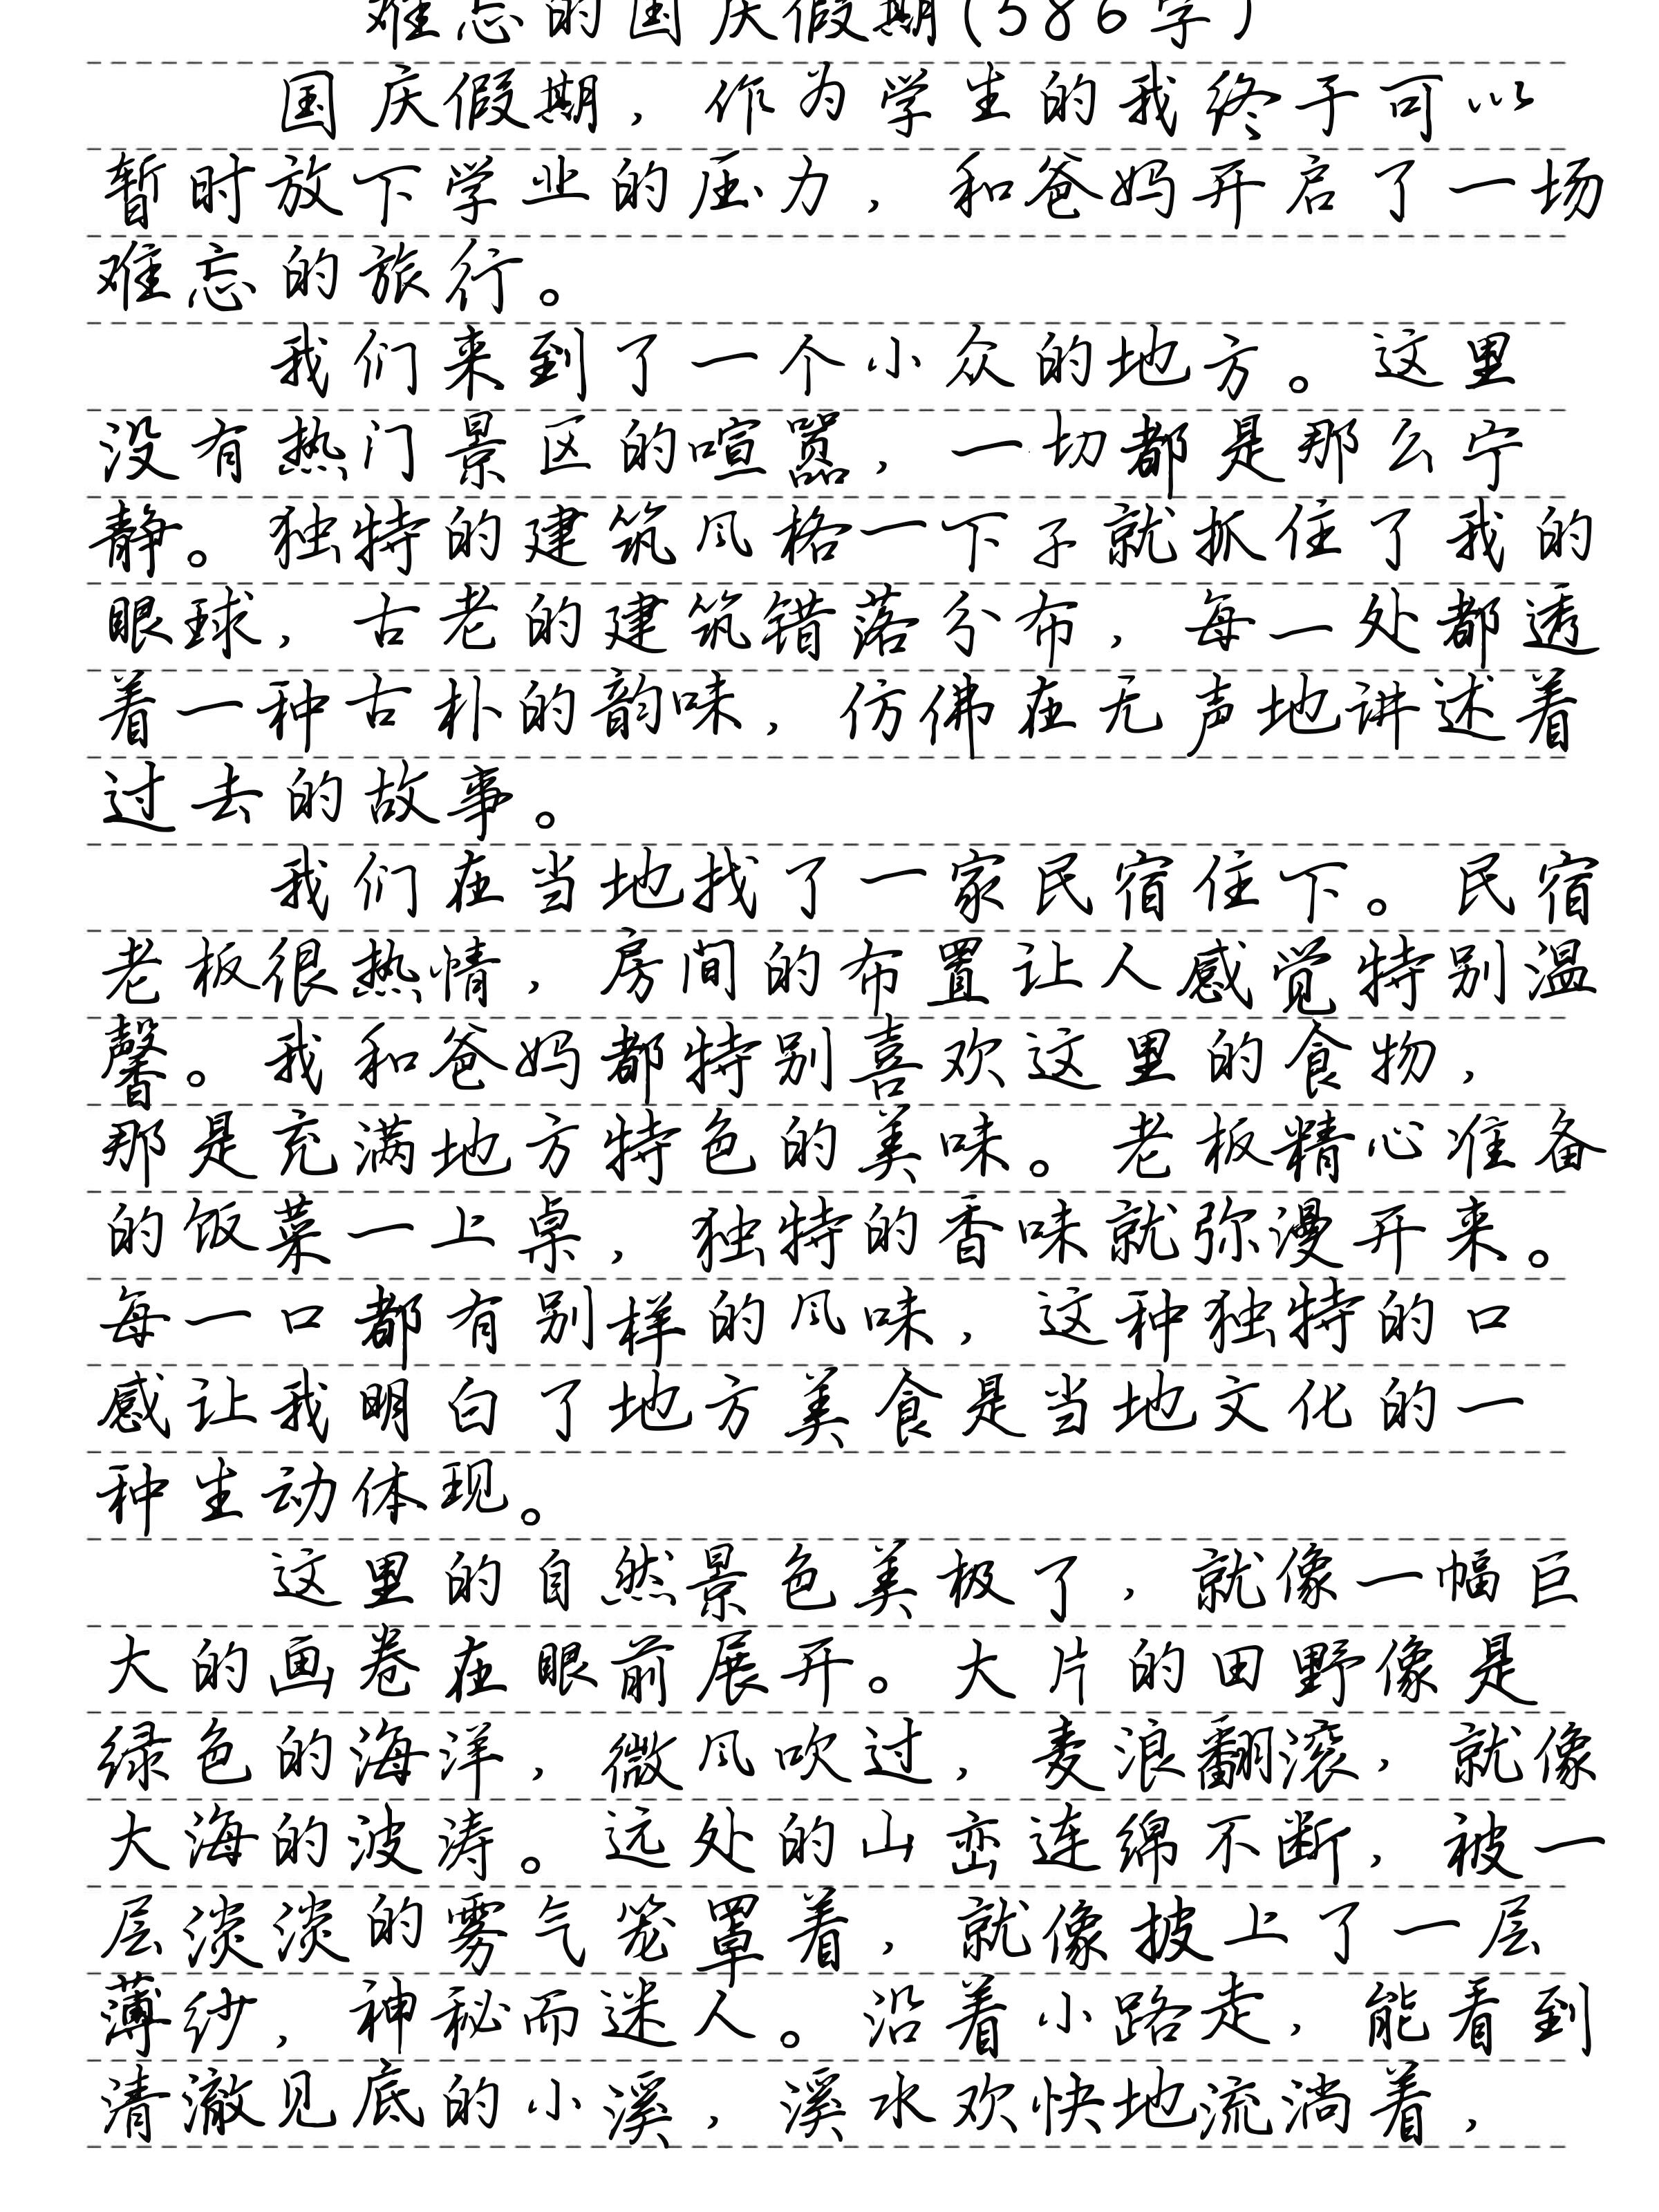 难忘的国庆假期(586字)
国庆假期，作为学生的我终于可以
暂时放下学业的压力，和爸妈开启了一场
难忘的旅行。
我们来到了一个小众的地方。这里
没有热门景区的喧嚣，一切都是那么宁
静。独特的建筑风格一下子就抓住了我的
眼球，古老的建筑错落分布，每一处都透
着一种古朴的韵味，仿佛在无声地讲述着
过去的故事。
我们在当地找了一家民宿住下。民宿
老板很热情，房间的布置让人感觉特别温
馨。我和爸妈都特别喜欢这里的食物，
那是充满地方特色的美味。老板精心准备
的饭菜一上桌，独特的香味就弥漫开来。
每一口都有别样的风味，这种独特的口
感让我明白了地方美食是当地文化的一
种生动体现。
这里的自然景色美极了，就像一幅巨
大的画卷在眼前展开。大片的田野像是
绿色的海洋，微风吹过，麦浪翻滚，就像
大海的波涛。远处的山峦连绵不断，被一
层淡淡的雾气笼罩着，就像披上了一层
薄纱，神秘而迷人。沿着小路走，能看到
清澈见底的小溪，溪水欢快地流淌着，